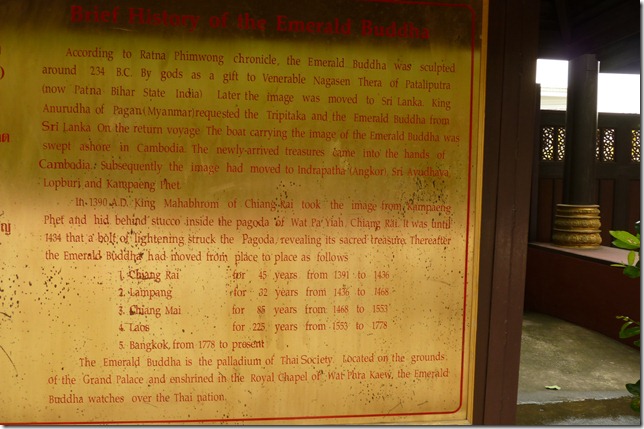 Brief History of the Emerald Buddha
According to Ratna Phimwong chronicle, the Emerald Buddha was sculpted
around 234 B.C. By gods as a gift to Venerable Nagasen Thera of Pataliputra
(now Patna Bihar State India) Later the image was moved to Sri Lanka. King
Anurudha of Pagan(Myanmar)requested the Tripitaka and the Emerald Buddha from
Sri Lanka. On the return voyage. The boat carrying the image of the Emerald Buddha was
swept ashore in Cambodia. The newly-arrived treasures came into the hands of
Cambodia. Subsequently the image had moved to Indrapatha(Angkor), Sri Ayudhaya,
Lopburi and Kampaeng Phet.
In 1390 A.D. King Mahabhrom of Chiang Rai took the image from Kampaeng
Phet and hid behind stucco inside the pagoda of Wat Pa Yiah, Chiang Rai. It was until
1434 that a bolt of lightening struck the Pagoda, revealing its sacred treasure. Thereafter
the Emerald Buddha had moved from place to place as follows
1. Chiang Rai for 45 years from 1391 to 1436
2. Lampang for 32 years from 1436 to 1468
3. Chiang Mai for 85 years from 1468 to 1553
4. Laos for 225 years from 1553 to 1778
5. Bangkok, from 1778 to present
The Emerald Buddha is the palladium of Thai Society. Located on the grounds
of the Grand Palace and enshrined in the Royal Chapel of Wat Phra Kaew, the Emerald
Buddha watches over the Thai nation.